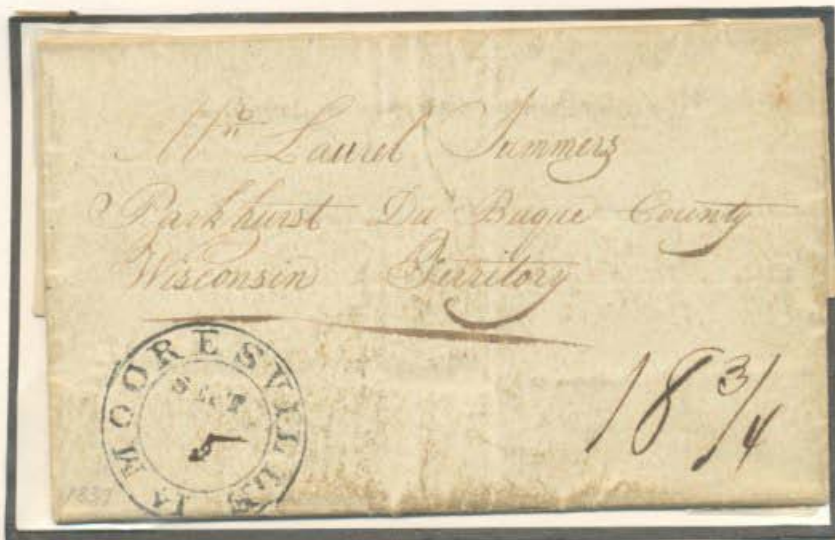 Mr Laurel Summers
Parkhurst Du Buque County
Wisconsin Territory
MOORESVILLE Ia
SEPT
5
18 3/4
1837